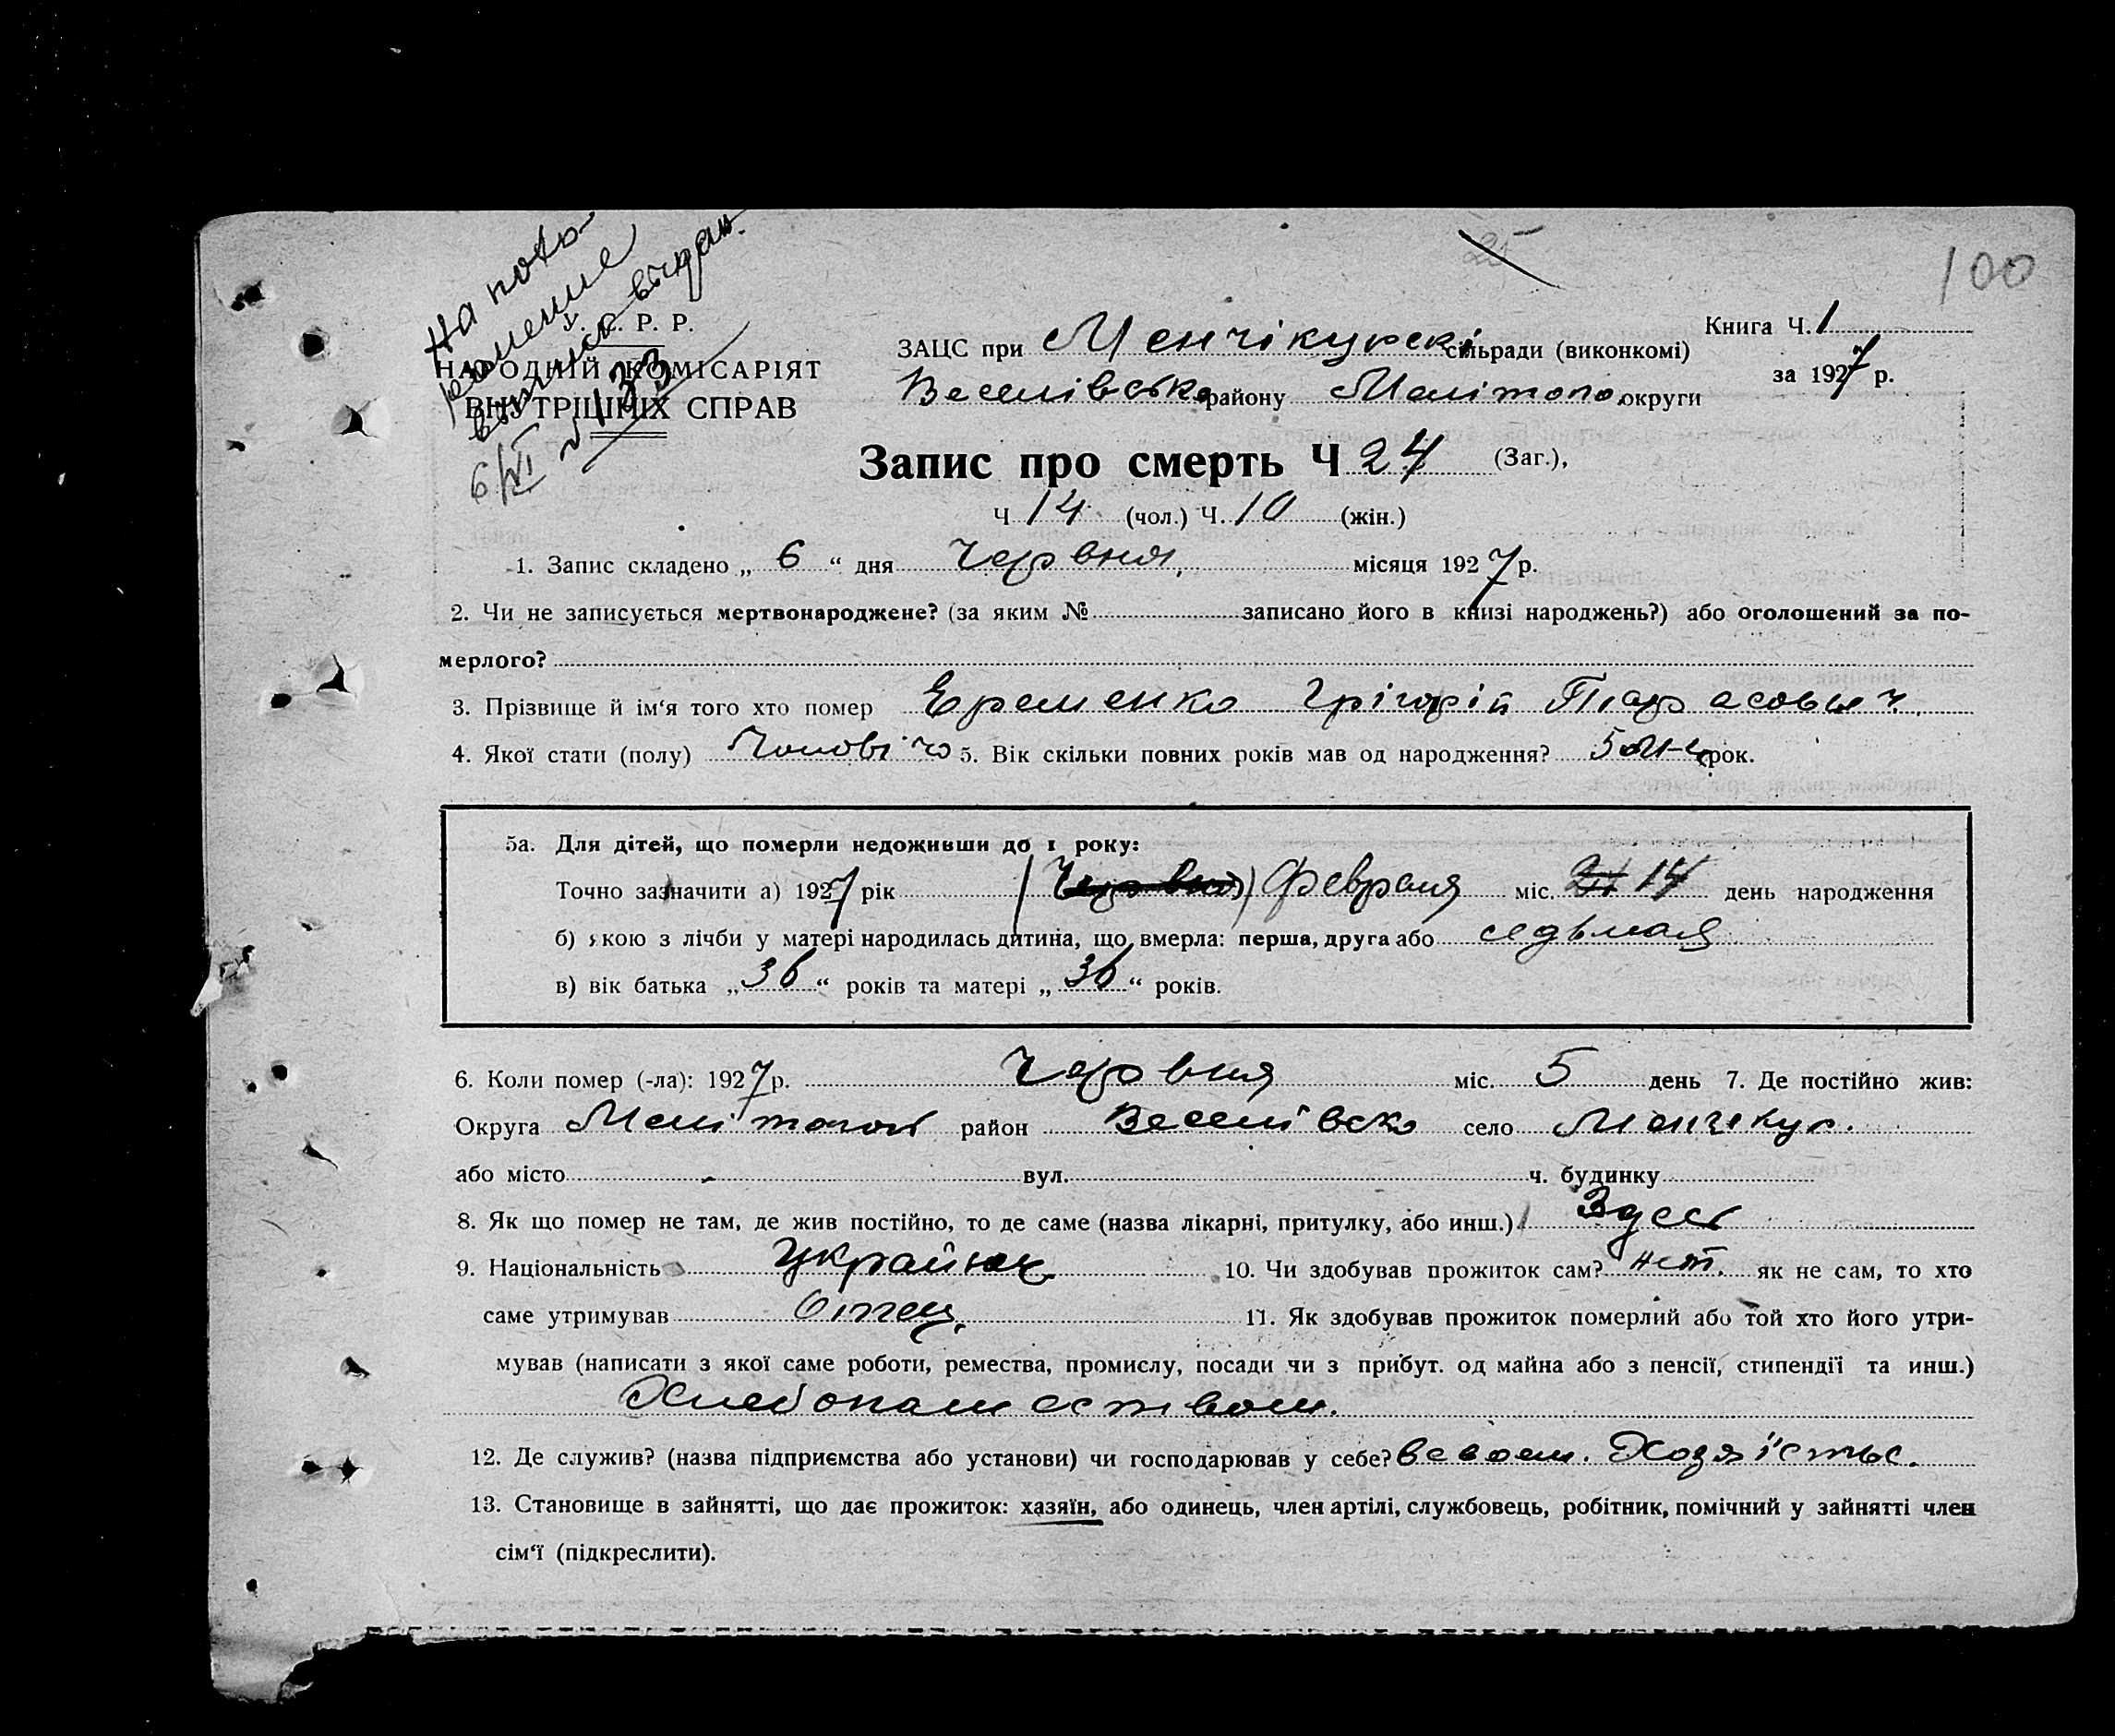 25
100
На пога-
выпись выдан.
6/VI № 133
У. С. Р. Р.
НАРОДНІЙ КОМІСАРІЯТ
ВНУТРІШНІХ СПРАВ
Книга Ч. 1
за 1927 р.
ЗАЦС при Менчікурскі сільради (виконкомі)
Веселівсько району Мелітопо. округи
Запис про смерть Ч 24 (Заг.),
Ч 14 (чол.) Ч. 10 (жін.)
1. Запис складено „ 6 “ дня Червня, місяця 1927 р.
2. Чи не записується мертвонароджене? (за яким № записано його в книзі народжень?) або оголошений за по-
мерлого?
3. Прізвище й ім‘я того хто помер Еременко Грігорій Тарасовыч.
4. Якої стати (полу) Чоловічо 5. Вік скільки повних років мав од народження? рок.
5а. Для дітей, що померли недоживши до 1 року:
Точно зазначити а) 1927 рік (Червня) Февраля міс. 14 день народження
б) якою з лічби у матері народилась дитина, що вмерла: перша, друга або седьмая
в) вік батька „ 36 “ років та матері „ 36 “ років.
6. Коли помер (-ла): 1927 р. Червня міс. 5 день 7. Де постійно жив:
Округа Мелітопол район Веселівско село Менчикур.
або місто вул. ч. будинку
8. Як що помер не там, де жив постійно, то де саме (назва лікарні, притулку, або инш.) Здесь
9. Національність Українец 10. Чи здобував прожиток сам? нет. як не сам, то хто
саме утримував Отец. 11. Як здобував прожиток померлий або той хто його утри-
мував (написати з якої саме роботи, ремества, промислу, посади чи з прибут. од майна або з пенсії, стипендії та инш.)
Хлебопашеством.
12. Де служив? (назва підприємства або установи) чи господарював у себе? в своем. Хозяїстве.
13. Становище в зайнятті, що дає прожиток: хазяїн, або одинець, член артілі, службовець, робітник, помічний у зайнятті член
сім‘ї (підкреслити).